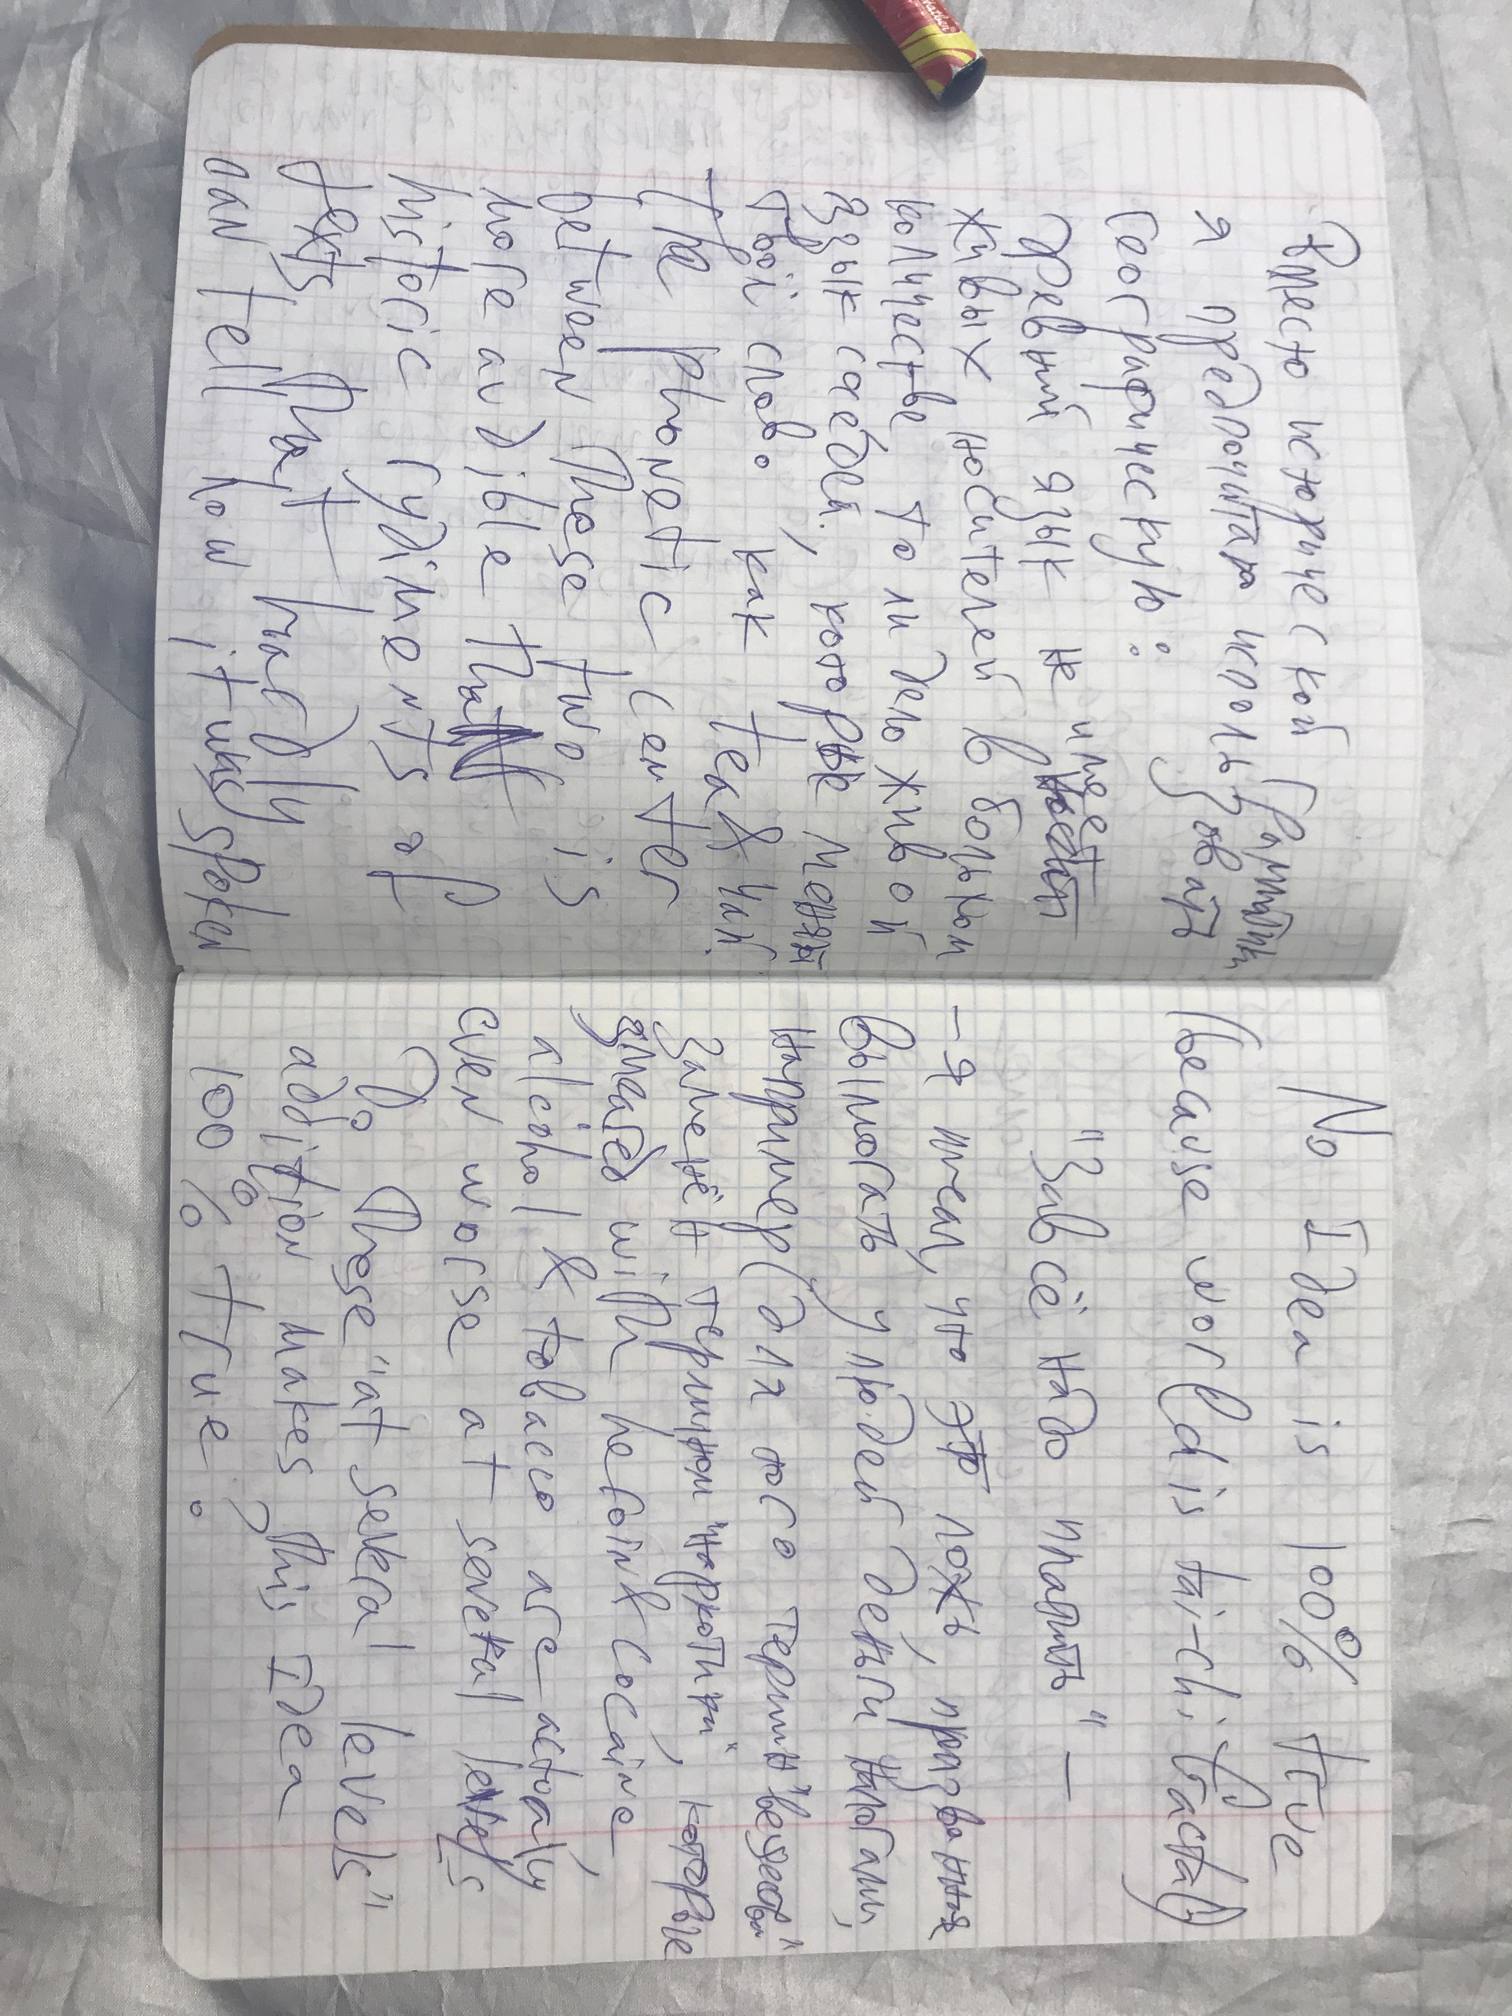 Вместо исторической грамматики
я предпочитаю использовать
географическую:
древний язык не имеет
живых носителей в большом
количестве то ли дело живой
язык соседей, которые меняют
твой слово как tea & чай.
The phonetic center
between these two is
more audible that
historic rydiments of
texts that hardly
can tell how it was spoken
No Idea is 100% true
because world is tai-chi-fractal
"За всё надо платить" –
– я считал, что это ложь, призванная
вымогать у людей деньги налогами,
например (для кого термин "вещества"
заменён термином "наркотики", которые
smeared with heroin & cocaine
alcohol & tobacco are actualy,
even worse at several levels
Do these "at sekral levels"
addition makes this Idea
100% true?